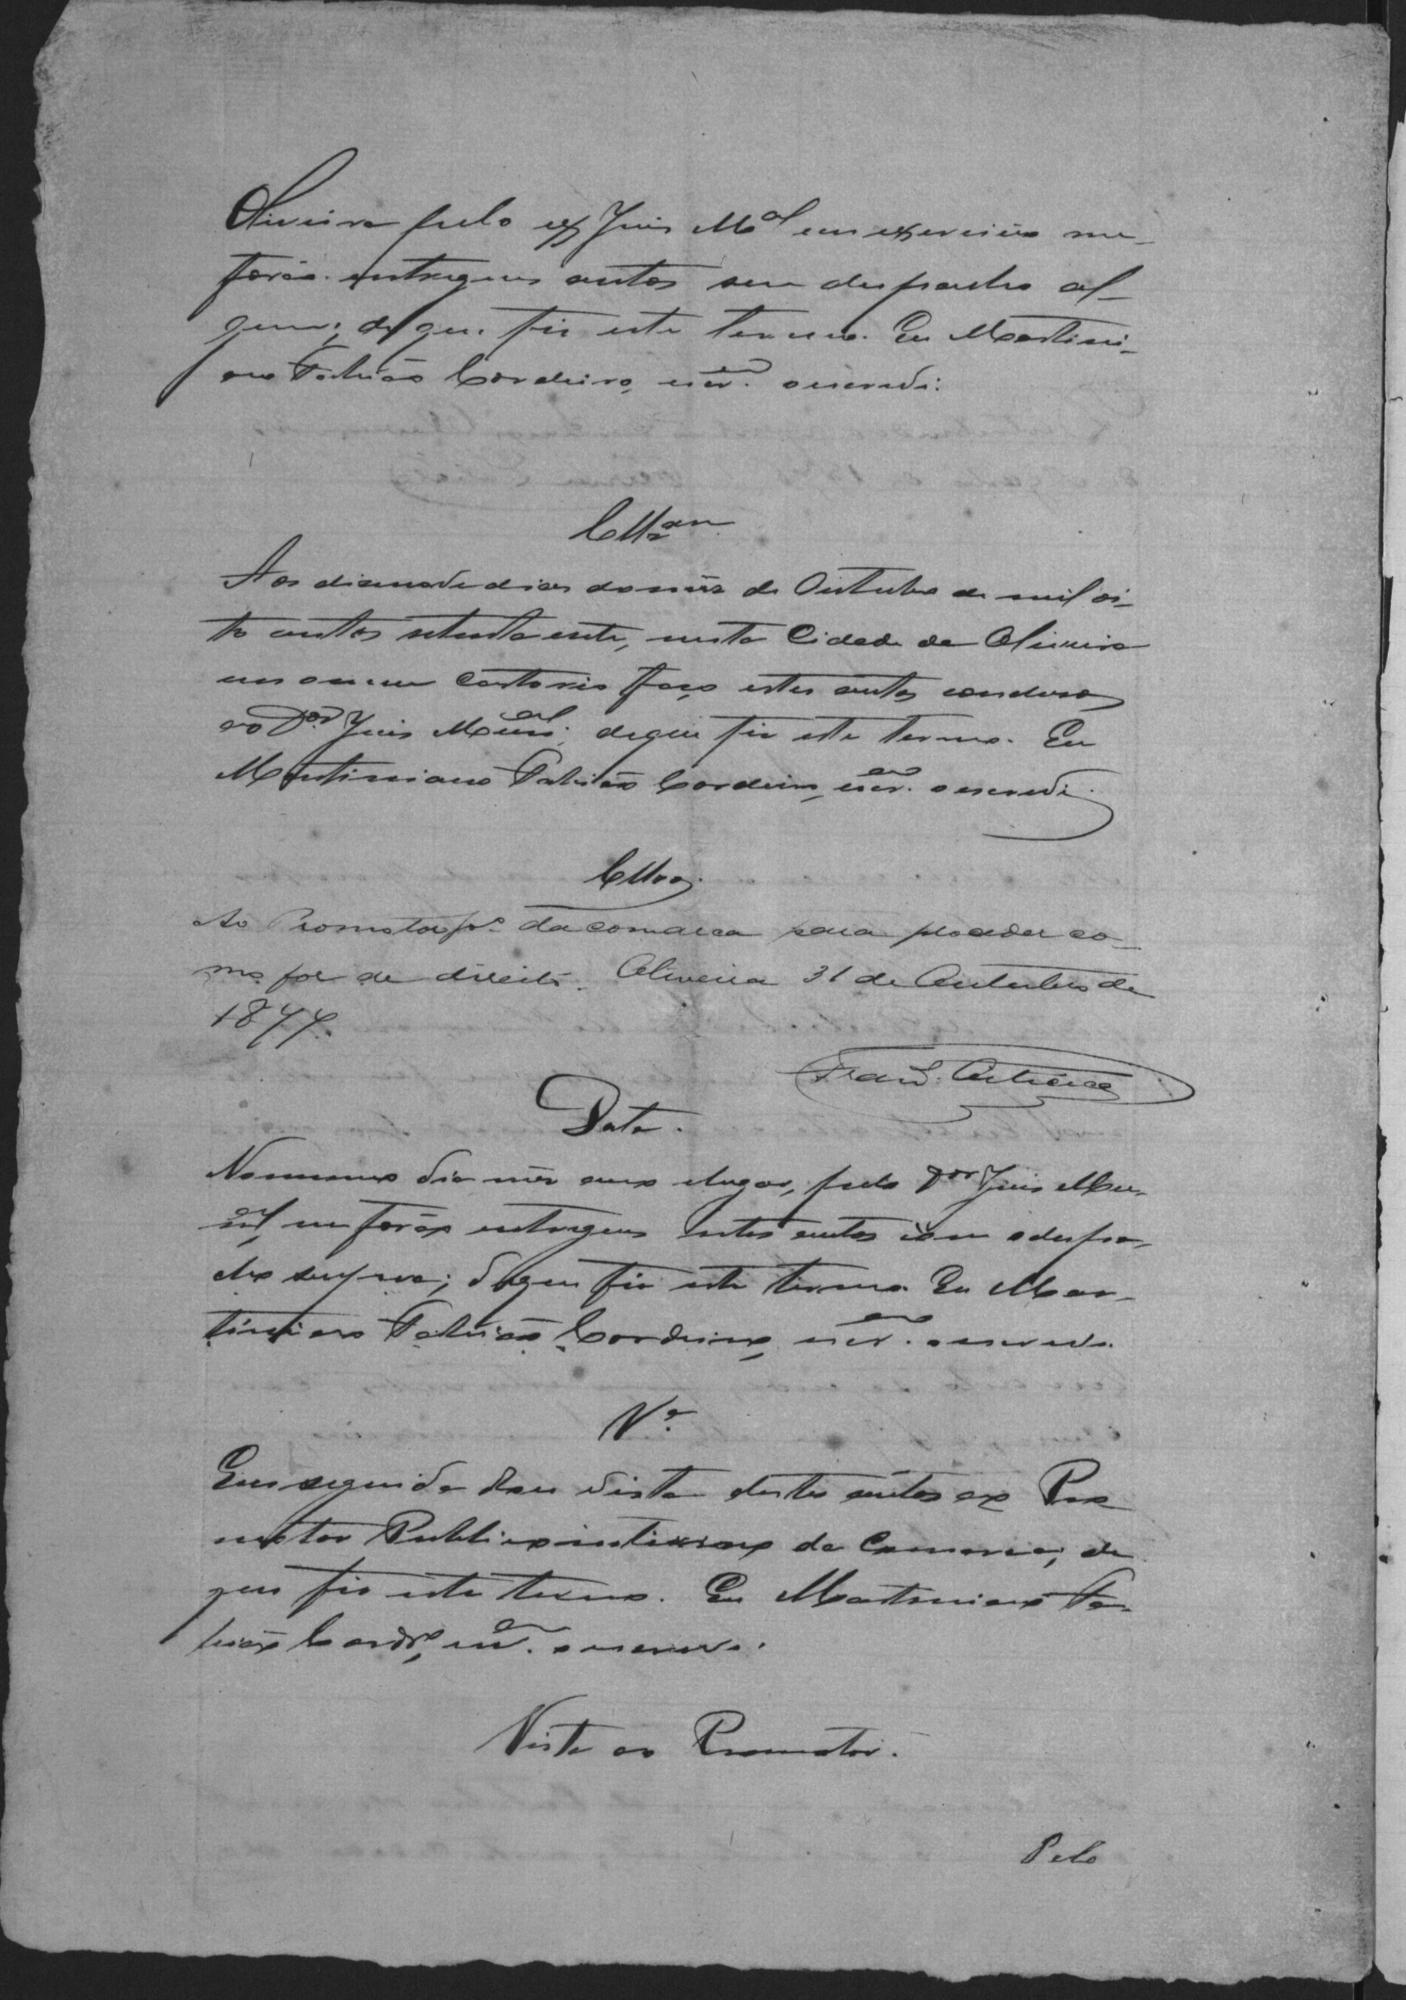 Oliveira pelo ex Juis M.al em exercicio me
forão entregues autos sem despacho al-
gum; do que fis este termo. Eu Martini-
ano Patricio Cordeiro, escr.am o escrevi.
Cllzam
Aos disenove dias do mês de Outubro de mil oi-
to centos setenta e sete, nesta Cidade de Oliveira
em o meu Cartorio faço estes autos conclusos
ao D.or Juis Mun.al; de que fis este termo. Eu
Martiniano Patricio Cordeiro, escr.am o escrevi.
Cllzos.
Ao Promotor p.º da comarca para proceder co-
mo for de direito. Oliveira 31 de Outubro de
1877.
Data.
No mesmo dia mês anno e lugar, pelo D.or Juis Mu-
nal me forão entregues estes autos com o despa-
cho supra; do que fis este termo. Eu Mar-
tiniano Patricio Cordeiro, escr.am o escrevi.
V.a
Em seguida dou vista destes autos ao Pro
motor Publico interino da Comarca; de
que fis este termo. Eu Martiniano Pa-
tricio Cordr.o, escr.am o escrevi.
Vista ao Promotor.
Pelo